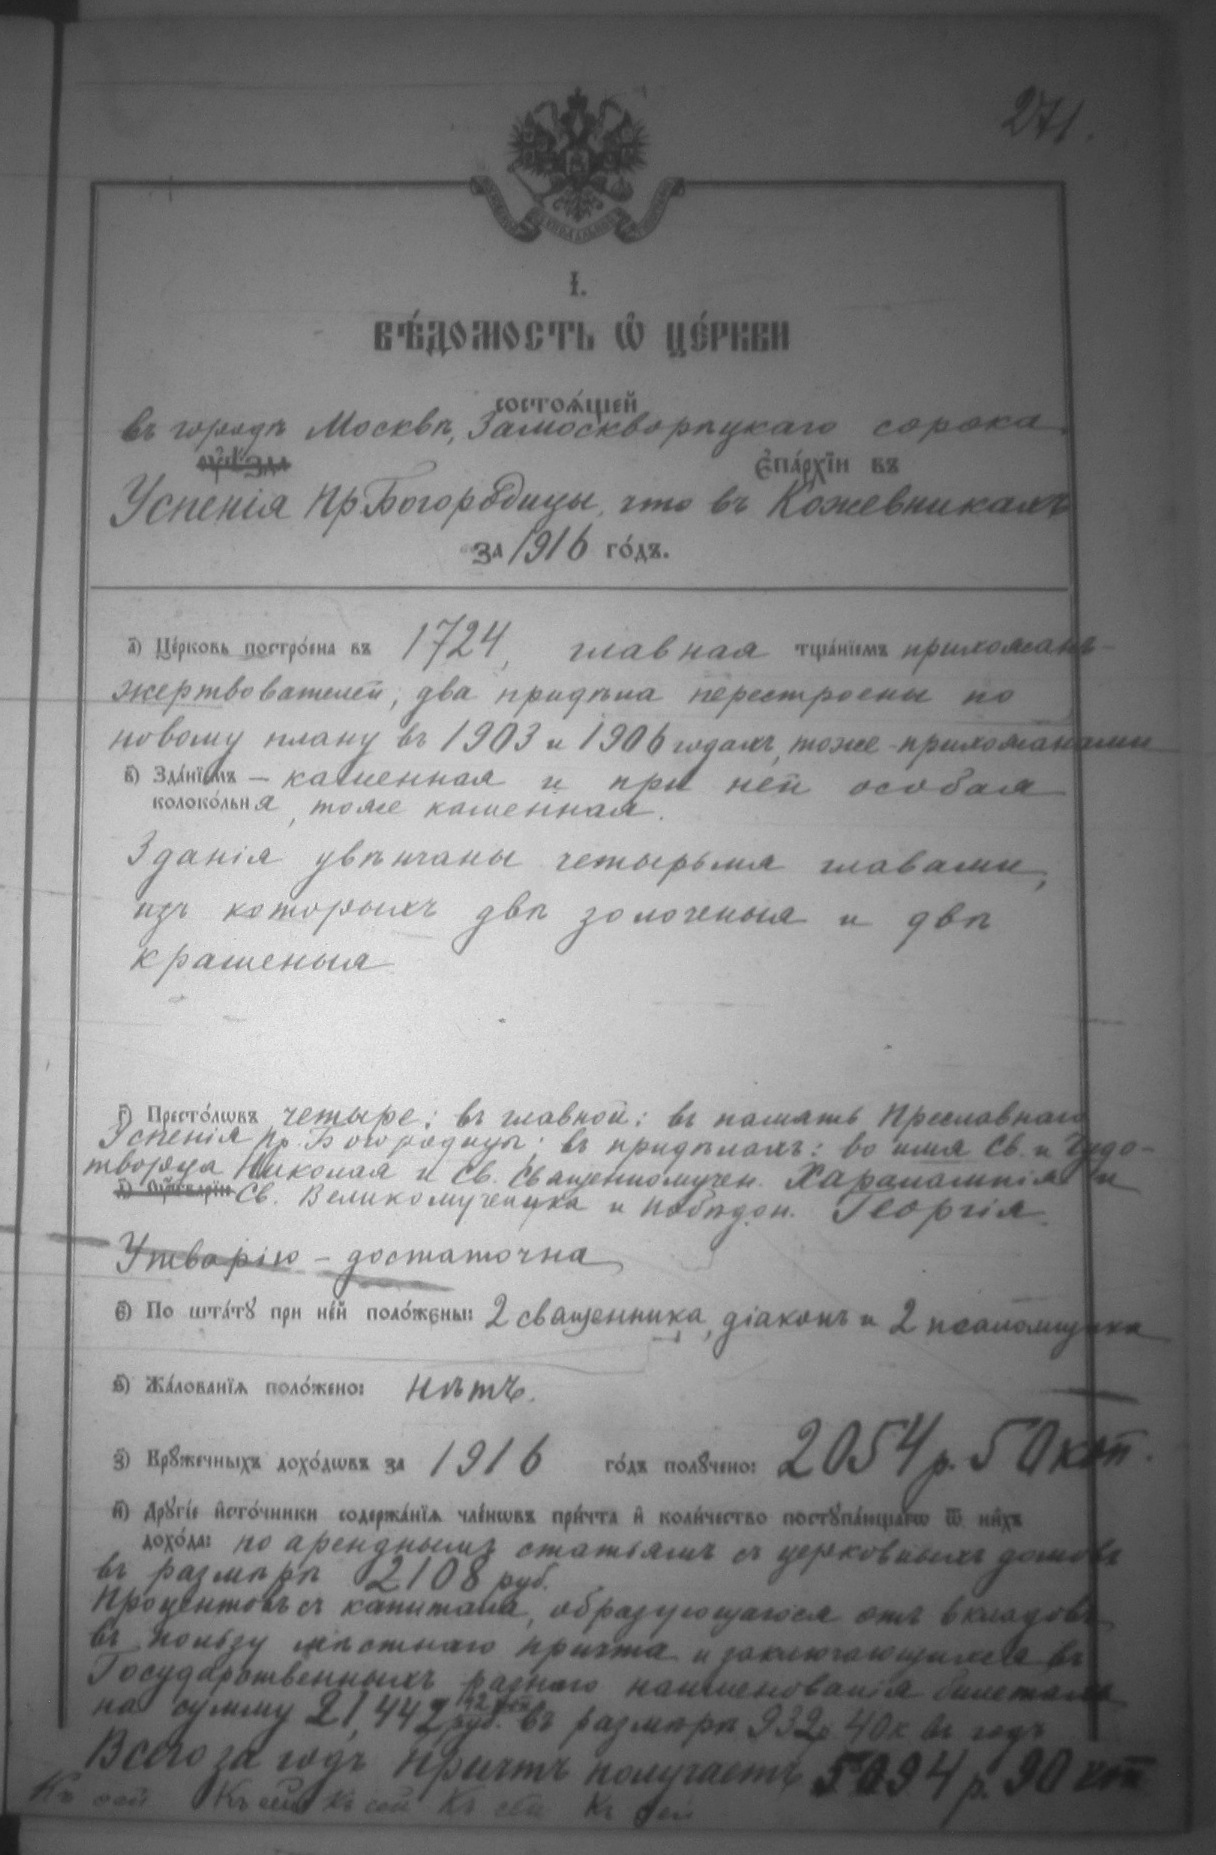 271.
І.
ВѢ́ДОМОСТЬ Ѡ҆ ЦЕ́РКВИ
состоѧ́щей
въ городѣ Москвѣ, Замоскворѣцкаго сорока
оуѣзда
Є҆па́рхїи въ
Успенія Пр. Богородицы, что въ Кожевникахъ
за 1916 го́дъ.
а҃) Це́рковь постро́ена въ 1724, главная тща́нїемъ прихожанъ-
жертвователей, два придѣла перестроены по
новому плану въ 1903 и 1906 годахъ, тоже прихожанами
в҃) Зда́нїемъ – каменная и при ней особая
колоко́льня, тоже каменная.
Зданія увѣнчаны четырьмя главами,
изъ которыхъ двѣ золоченыя и двѣ
крашеныя
г҃) Престо́лѡвъ четыре: въ главной: въ память Преславнаго
Успенія Пр. Богородицы; въ придѣлахъ: во имя Св. и Чудо-
творца Николая и Св. Священномучен. Харалампія и
Св. Великомученика и Побѣдон. Георгія.
Утварію – достаточна
є҃) По шта́тꙋ при не́й поло́жены: 2 священника, діаконъ и 2 псаломщика
ѕ҃) Жа́лованїѧ поло́жено: нѣтъ.
з҃) Крꙋ́жечныхъ дохо́дѡвъ за 1916 го́дъ полꙋчено: 2054 р. 50 коп.
и҃) Дрꙋгі́е и҆сто́чники содержа́нїѧ чле́нѡвъ при́чта и҆ коли́чество постꙋпа́ющагѡ ѿ ни́хъ
дохо́да: по аренднымъ статьямъ съ церковныхъ домовъ
въ размѣрѣ 2108 руб.
Процентовъ съ капитала, образующагося отъ вкладовъ
въ пользу мѣстнаго причта и заключающихся въ
Государственныхъ разнаго наименованія билетахъ
на сумму 21,442 руб. 12 коп. въ размѣрѣ 932 р. 40 к въ годъ
Всего за годъ причтъ получаетъ 5094 р. 90 коп
Къ сей Къ сей Къ сей Къ сей Къ сей